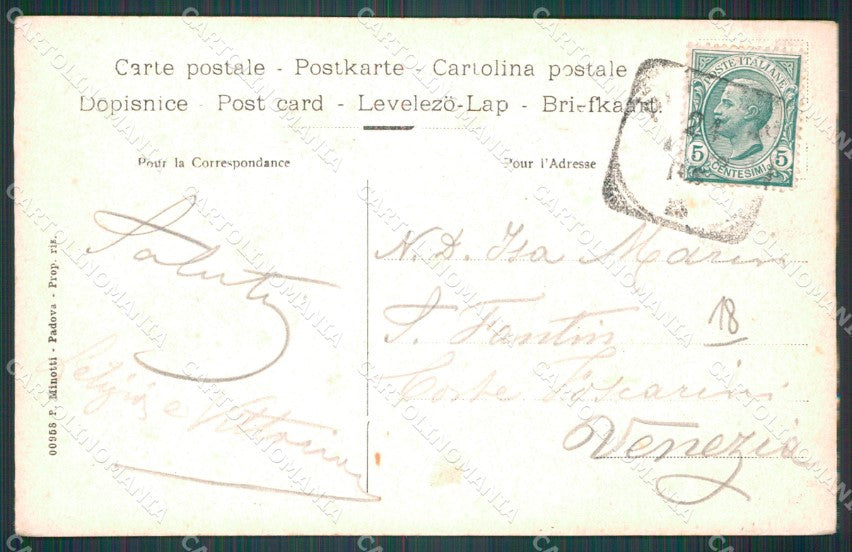 Carte postale - Postkarte - Cartolina postale
Dopisnice - Post card - Levelező-Lap - Briefkaart.
Pour la Correspondance
Pour l'Adresse
POSTE ITALIANE
5 CENTESIMI 5
Saluti
e Vittorina
N. D. Isa Marin
S. Fantin
18
Corte Foscarini
Venezia
00958 P. Minotti - Padova - Prop. ris.
CARTOLINOMANIA